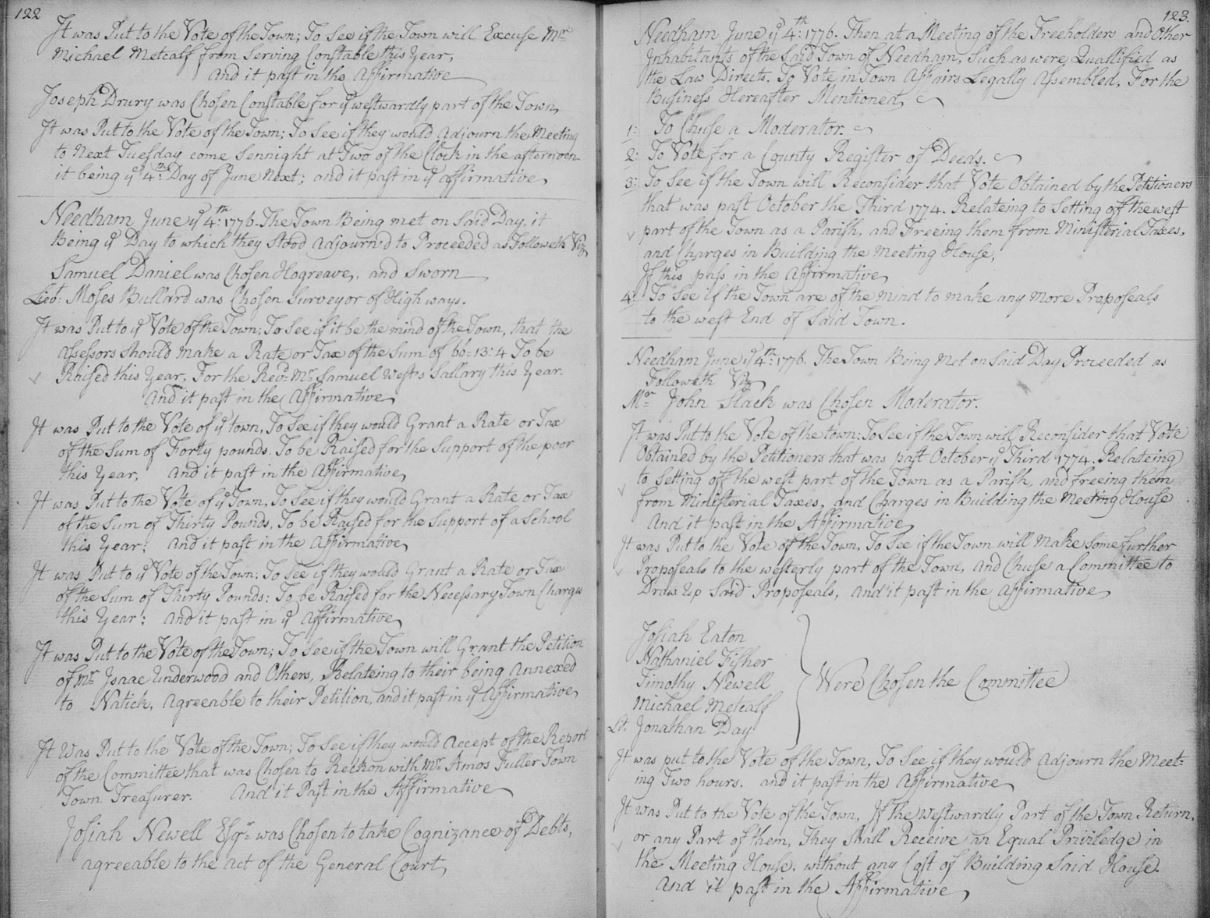 122
It was Put to the Vote of the Town; To See if the Town will Excuse Mr
Michael Metcalf from Serving Constable this Year,
And it past in the Affirmative
Joseph Drury was Chosen Constable for ye westwardly part of the Town,
It was Put to the Vote of the Town; To See if they would Adjourn the Meeting
to Next Tuesday come Sennight at Two of the Clock in the afternoon
it being ye 4th Day of June Next; and it past in ye affirmative,
Needham June ye 4th: 1776. The Town Being met on Said Day, it
Being ye Day to which they Stood Adjourn'd to Proceeded as Followeth Viz
Samuel Daniel was Chosen Hogreave, and Sworn
Lieut: Moses Bullard was Chosen Surveyor of High ways.
It was Put to ye Vote of the Town; To See if it be the mind of the Town, that the
Assessors Should make a Rate or Tax of the Sum of 66:13:4 To be
Raised this Year, For the Revd Mr Samuel West's Sallary this Year.
And it past in the Affirmative,
It was Put to the Vote of ye town, To See if they would Grant a Rate or Tax
of the Sum of Forty pounds, To be Raised for the Support of the poor
this Year, And it past in the Affirmative,
It was Put to the Vote of ye Town, To See if they would Grant a Rate or Tax
of the Sum of Thirty Pounds, To be Raised for the Support of a School
this Year; And it past in the Affirmative,
It was Put to ye Vote of the Town; To See if they would Grant a Rate or Tax
of the Sum of Thirty Pounds; To be Raised for the Necessary Town Charges
this Year; And it past in ye Affirmative,
It was Put to the Vote of the Town; To See if the Town will Grant the Petition
of Mr Isaac Underwood and Others, Relateing to their being Annexed
to Natick, Agreeable to their Petition, and it past in ye Affirmative,
It Was Put to the Vote of the Town; To See if they would Accept of the Report
of the Committee that was Chosen to Reckon with Mr Amos Fuller Town
Town Treasurer. And it Past in the Affirmative
Josiah Newell Esqr was Chosen to take Cognizance of Debts,
agreeable to the act of the General Court,
123.
Needham June ye 4th: 1776. Then at a Meeting of the Freeholders and Other
Inhabitants of the Said Town of Needham, Such as were Quallified as
the Law Directs, To Vote in Town Affairs Legally Assembled, For the
Business Hereafter Mentioned,
1: To Chuse a Moderator.
2: To Vote for a County Register of Deeds.
3: To See if the Town will Reconsider that Vote Obtained by the Petitioners
that was past October the Third 1774. Relateing to Setting off the west
part of the Town as a Parish, and Freeing them from Ministerial Taxes,
and Charges in Building the Meeting House,
If this pass in the Affirmative
4: To See if the Town are of the mind to make any More Proposeals
to the west End of Said Town.
Needham June ye 4th: 1776. The Town Being Met on Said Day, Proceeded as
Followeth Viz
Mr John Slack was Chosen Moderator.
It was Put to the Vote of the town; To See if the Town will Reconsider that Vote
Obtained by the Petitioners that was past October ye Third 1774, Relateing
to Setting off the west part of the Town as a Parish, and freeing them
from Ministerial Taxes, and Charges in Building the Meeting House
And it past in the Affirmative,
It was Put to the Vote of the Town, To See if the Town will Make Some further
Proposeals to the westerly part of the Town, And Chuse a Committee to
Draw Up Said Proposeals, and it past in the Affirmative,
Josiah Eaton
Nathaniel Fisher
Timothy Newell
Michael Metcalf
Lt. Jonathan Day
Were Chosen the Committee
It was put to the Vote of the Town, To See if they would Adjourn the Meet-
ing Two hours. and it past in the Affirmative
It was Put to the Vote of the Town, If the Westwardly Part of the Town Return,
or any Part of them, They Shall Receive an Equal Priviledge in
the Meeting House, without any Cost of Building Said House.
And it past in the Affirmative,